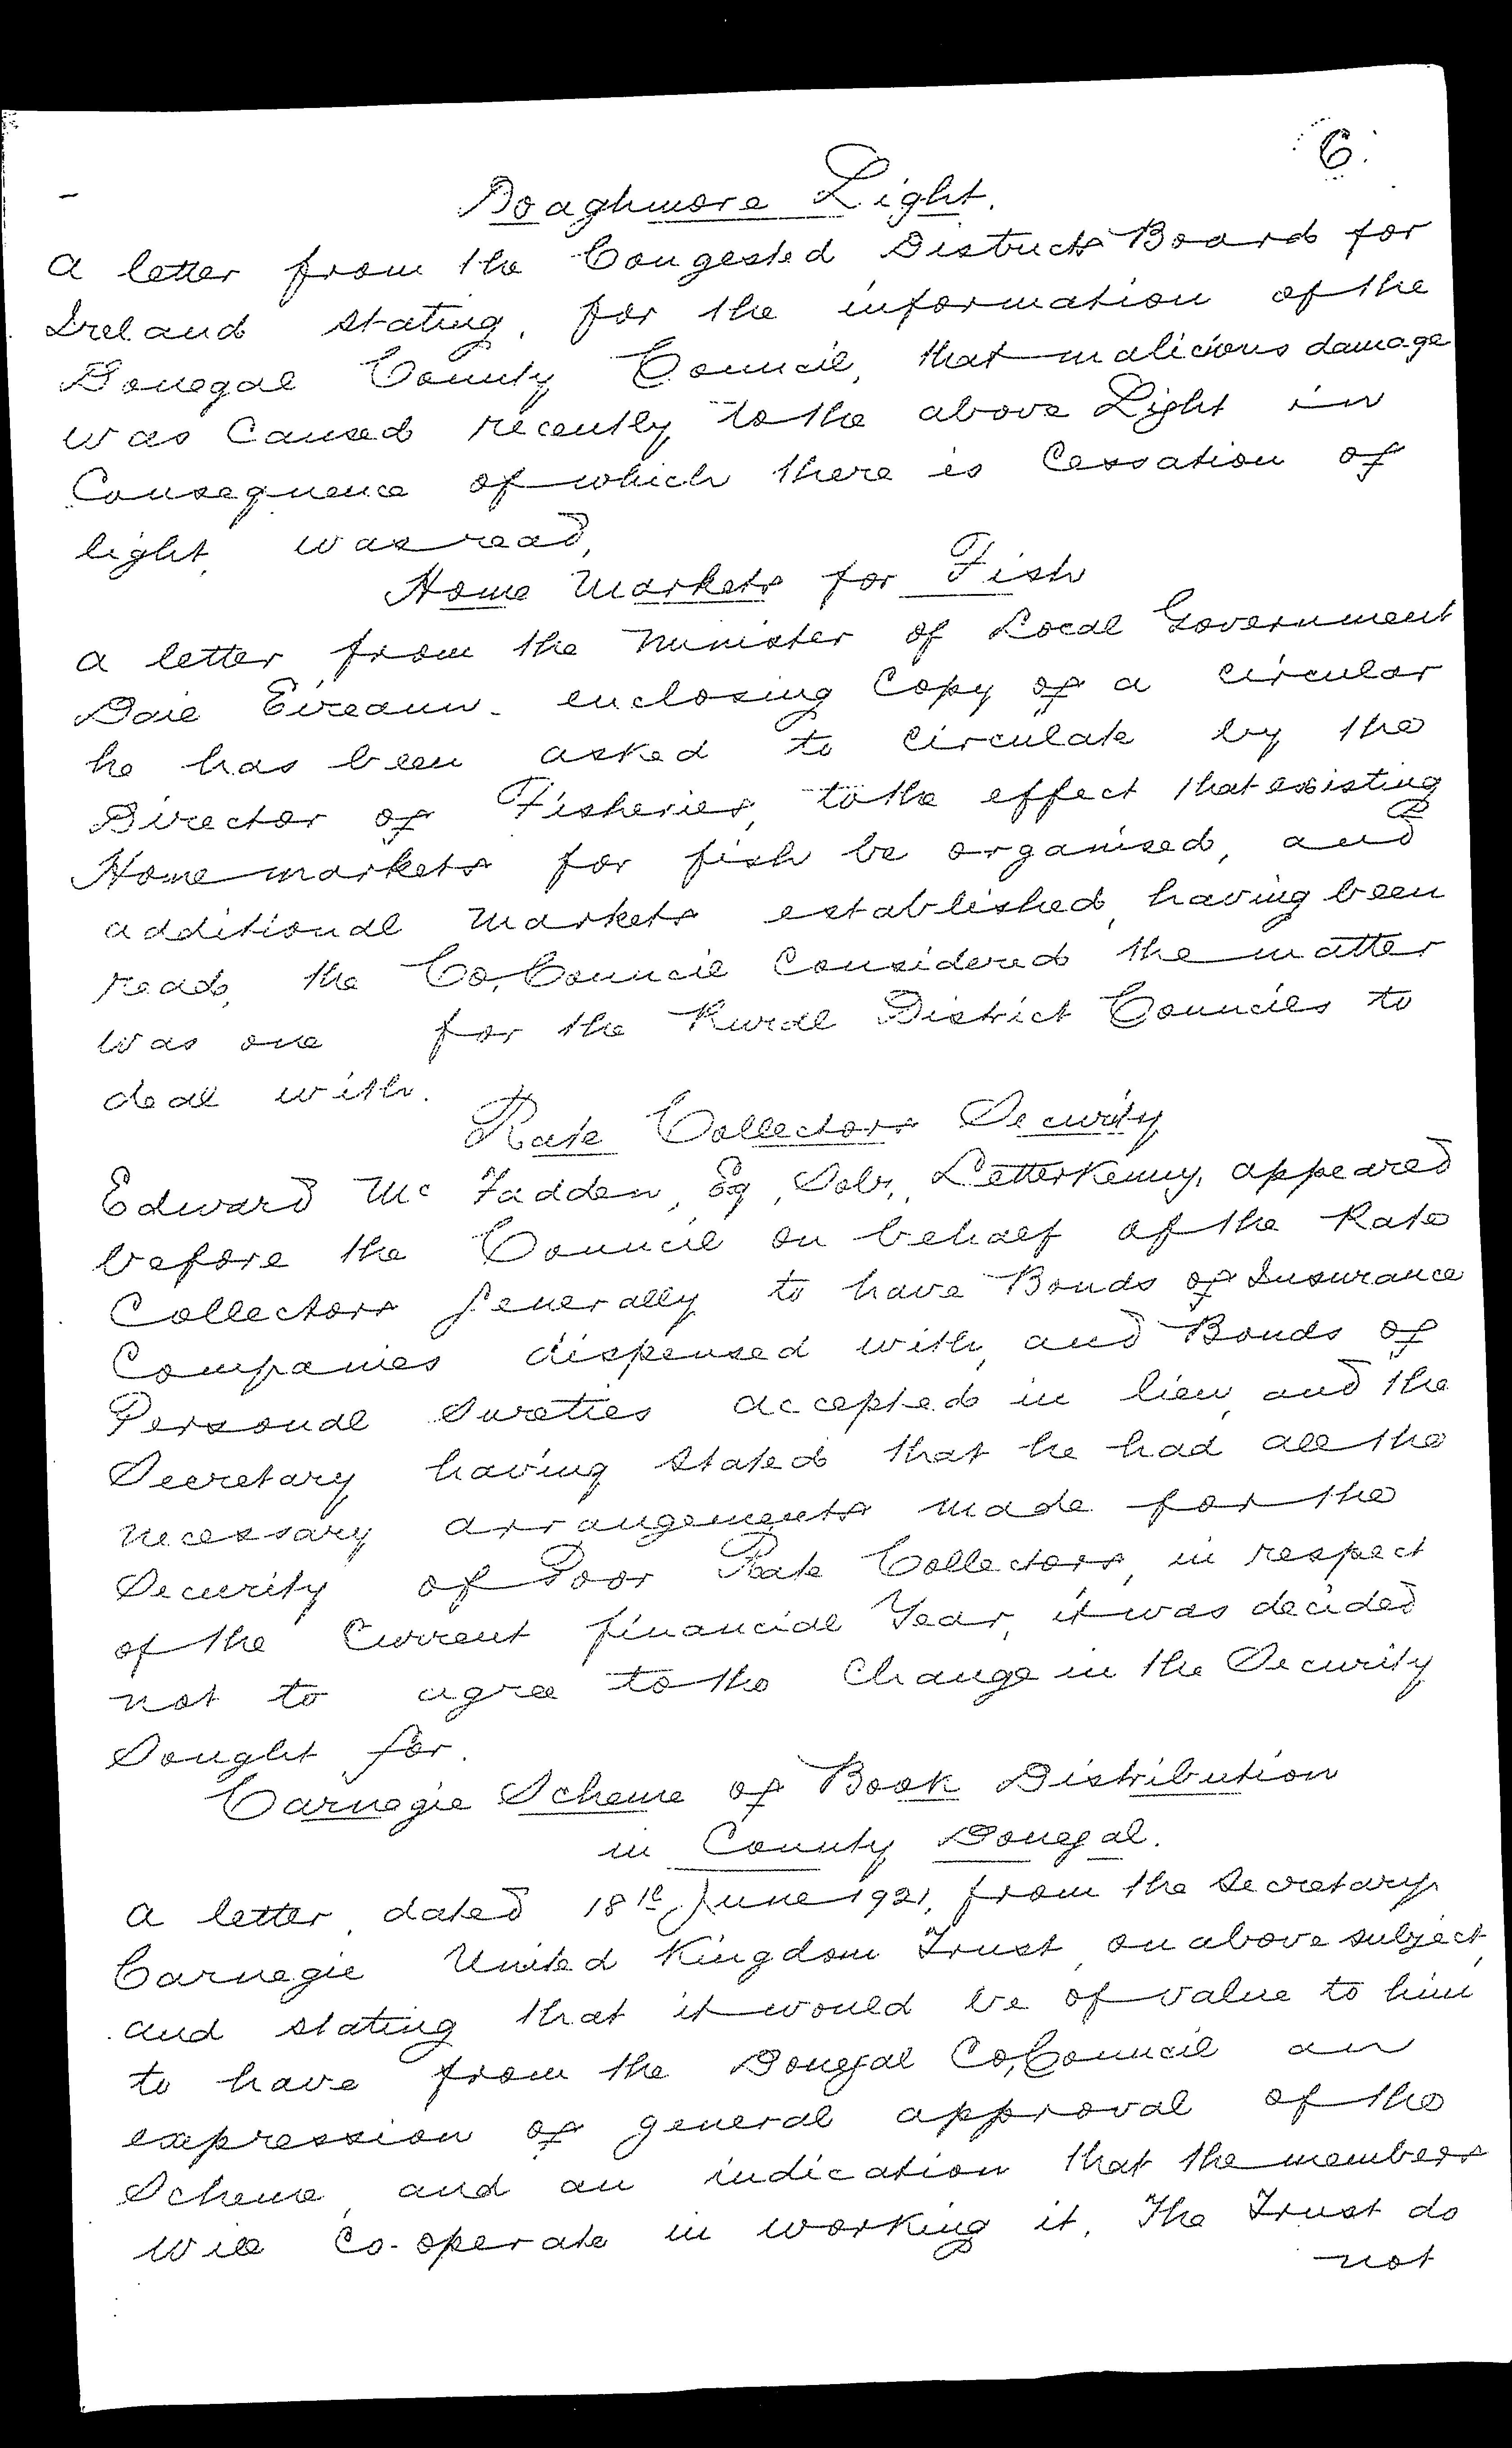 6.
Doaghmore Light.
A letter from the Congested Districts Board for
Ireland stating, for the information of the
Donegal County Council, that malicious damage
was Caused recently to the above Light in
Consequence of which there is Cessation of
light, was read,
Home Markets for Fish
A letter from the Minister of Local Government
Dail Eireann - enclosing Copy of a circular
he has been asked to circulate by the
Director of Fisheries, to the effect that existing
Home markets for fish be organised, and
additional markets established, having been
read, the Co. Council Considered the matter
was one for the Rural District Councils to
deal with.
Rate Collectors Security
Edward Mc Fadden, Esq, Solr., Letterkenny, appeared
before the Council on behalf of the Rate
Collectors generally to have Bonds of Insurance
Companies dispensed with, and Bonds of
Personal Sureties accepted in lieu, and the
Secretary having stated that he had all the
necessary arrangements made for the
Security of Poor Rate Collectors, in respect
of the Current financial Year, it was decided
not to agree to the Change in the Security
Sought for.
Carnegie Scheme of Book Distribution
in County Donegal.
A letter, dated 18th June 1921, from the Secretary
Carnegie United Kingdom Trust, on above subject,
and stating that it would be of value to him
to have from the Donegal Co. Council an
expression of general approval of the
Scheme, and an indication that the members
will Co-operate in working it. The Trust do
not